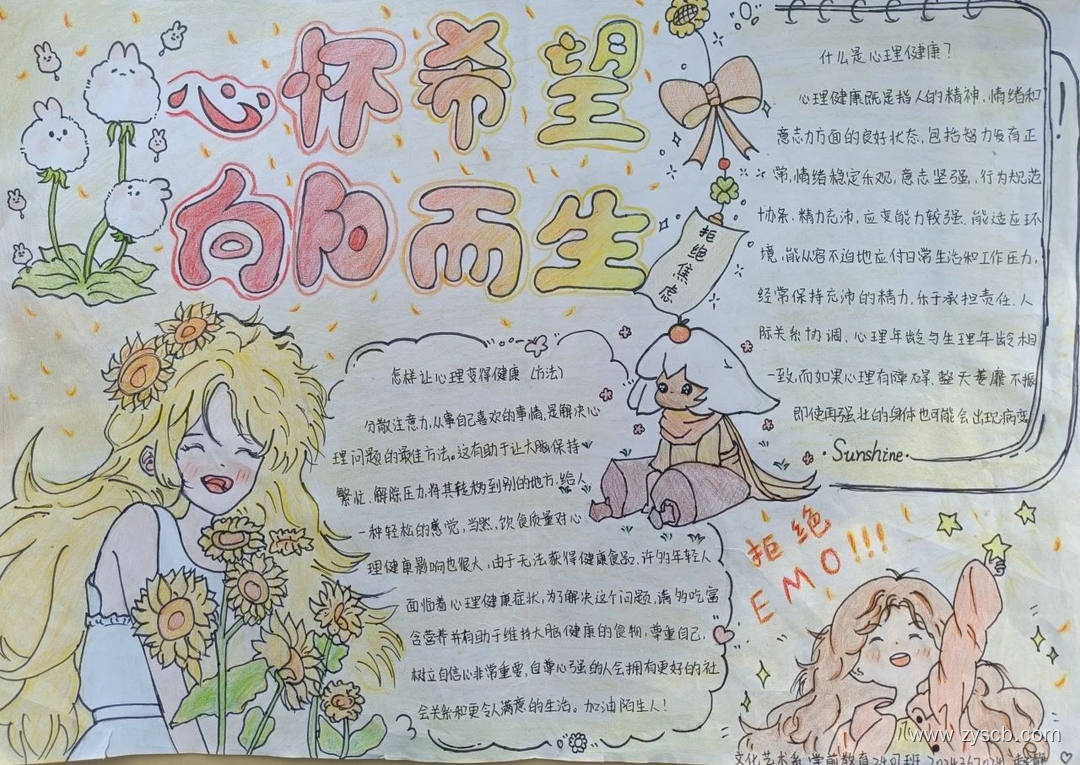 心怀希望
向阳而生
拒绝焦虑
什么是心理健康?
心理健康既是指人的精神,情绪和
意志力方面的良好状态,包括智力发育正
常,情绪稳定乐观,意志坚强,行为规范
协条,精力充沛,应变能力较强,能适应环
境,能从容不迫地应付日常生活和工作压力,
经常保持充沛的精力,乐于承担责任,人
际关系协调,心理年龄与生理年龄相
一致,而如果心理有障碍,整天萎靡不振
即使再强壮的身体也可能会出现病变
·Sunshine·
怎样让心理变得健康(方法)
分散注意力,从事自己喜欢的事情,是解决心
理问题的最佳方法。这有助于让大脑保持
繁忙,解除压力,将其转移到别的地方,给人
一种轻松的感觉,当然,饮食质量对心
理健康影响也很大,由于无法获得健康食品,许多年轻人
面临着心理健康症状,为了解决这个问题,请多吃富
含营养并有助于维持大脑健康的食物,尊重自己,
树立自信心非常重要,自尊心强的人会拥有更好的社
会关系和更令人满意的生活。加油陌生人!
拒绝
EMO!!!
www.zyscb.com
文化艺术系 学前教育24 班